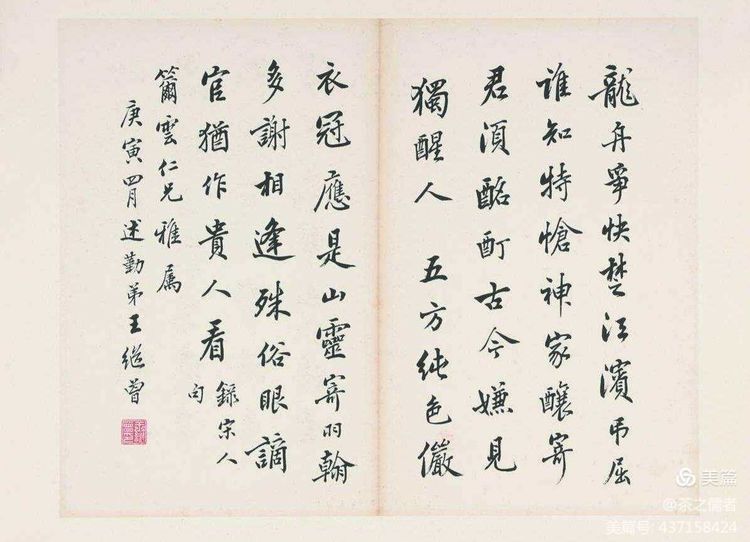 龍舟爭快楚江濱弔屈
誰知特愴神家釀寄
君須酩酊古今嫌見
獨醒人 五方純色儼
衣冠應是山靈寄羽翰
多謝相逢殊俗眼謫
官猶作貴人看 錄宋人
句
籋雲仁兄雅属
庚寅四月述勤弟王繼曾
美篇
@茶之儒者
美篇号: 437158424